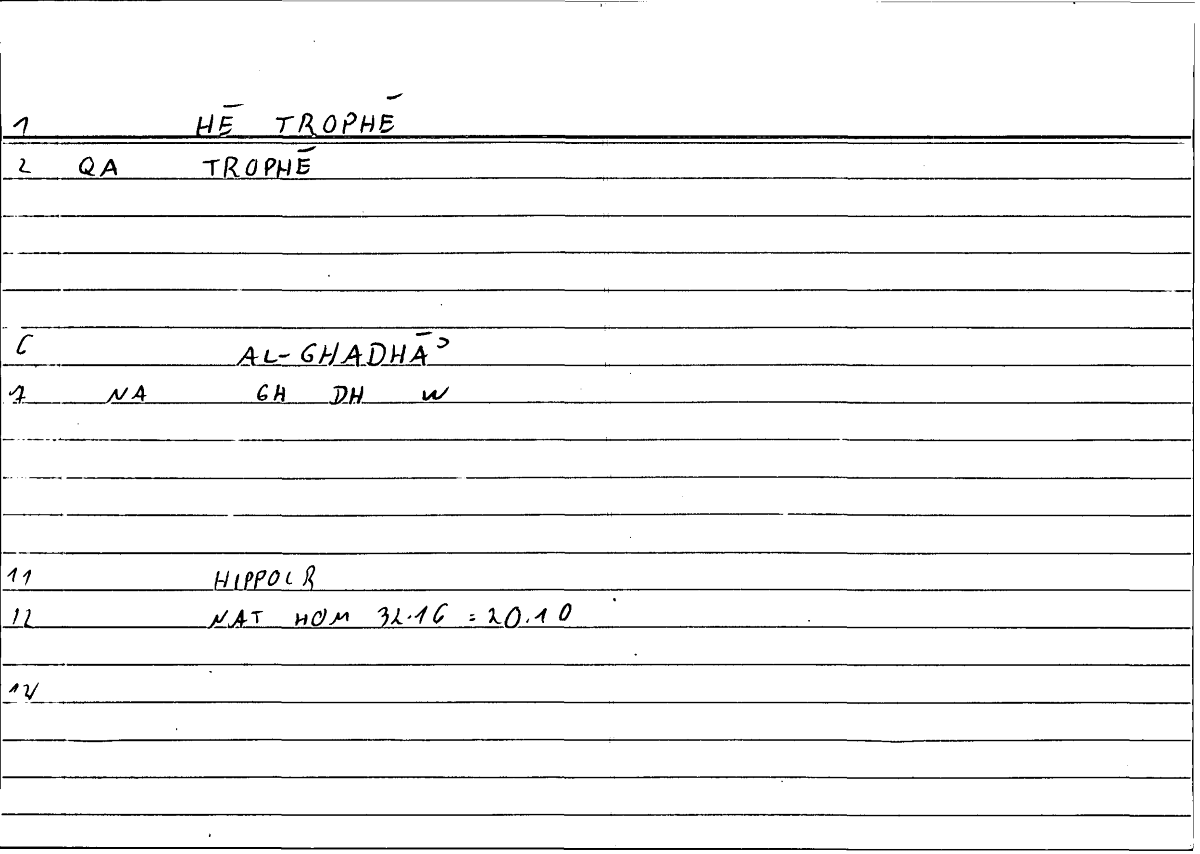 1 HĒ TROPHĒ
2 QA TROPHĒ
6 AL-GHADHĀʾ
7 NA GH DH W
11 HIPPOCR
12 NAT HOM 32.16 = 20.10
14